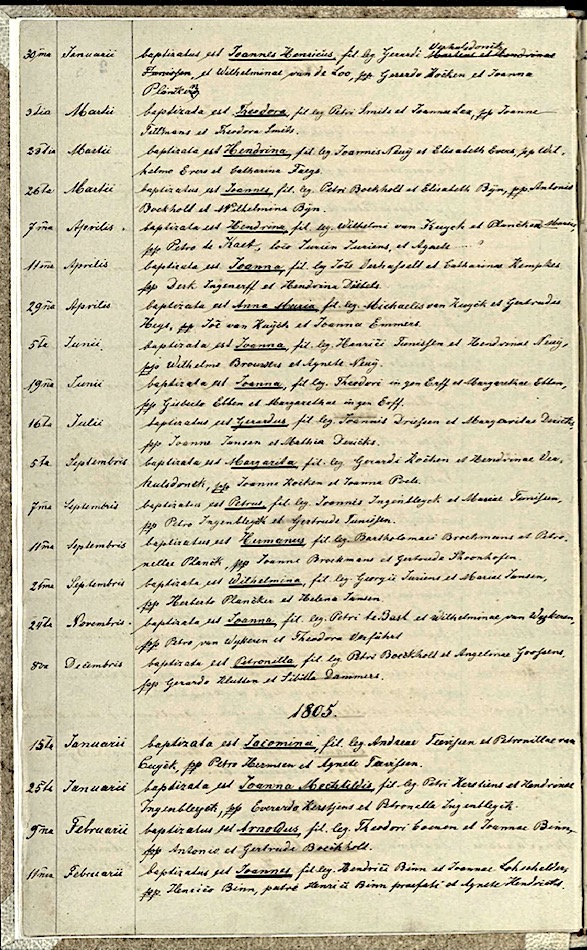 30ma Januarii baptizatus est Joannes Henricus, fil. leg. Gerardi
Tunissen, et Wilhelminae van de Loo, pp. Gerardo Kocken et Joanna
Plancker
3tia Martii baptizata est Theodora, fil. leg. Petri Smits et Joannae Lax, pp Joanne
Tillmans et Theodora Smits.
23tia Martii baptizata est Hendrina, fil. leg. Joannis Neuÿ et Elisabeth Evers, pp Wil-
helmo Evers et Catharina
26ta Martii baptizatus est Joannes, fil. leg. Petri Bockholt et Elisabeth Bÿn, pp Antonio
Bockholt et Wilhelmina Bÿn.
7ma Aprilis baptizata est Hendrina, fil. leg. Wilhelmi van Kuyck et
pp Petro de Kaet, loco Jurien Juriens, et Agnete
11ma Aprilis baptizata est Joanna, fil. leg. Joïs Verhasselt et Catharinae Kempkes
pp Derk Ingenerff et Hendrina
29na Aprilis baptizata est Anna Maria fil. leg. Michaelis van Kuyck et Gertrudis
Heys, pp Joë van Kuÿck et Joanna Emmers.
5ta Junii baptizata est Joanna, fil. leg. Henrici Tunissen et Hendrinae Neuy,
pp Wilhelmo Brouwers et Agnete Neuÿ.
19na Junii baptizata est Joanna, fil. leg. Theodori in gen Erff et Margarethae Ebben,
pp Gisberto Ebben et Margarethae in gen Erff.
16ta Julii baptizatus est Gerardus fil. leg. Joannis Driessen et Margaritae Dericks
pp Joanne Jansen et Mathia Dericks.
5ta Septembris baptizata est Margarita, fil. leg. Gerardi Kocken et Hendrinae Ver-
hulsdonck, pp Joanne Kocken et Joanna
7ma Septembris baptizatus est Petrus, fil. leg. Joannis Ingenbleyck et Mariae Tunissen,
pp Petro Ingenbleyck et Gertrude Tunissen.
11ma Septembris baptizatus est Hermanus fil. leg. Bartholomaei Brockmans et Petro-
nellae Planck, pp Joanne Brockmans et Gertruda Schoonhofen
26ma Septembris baptizata est Wilhelmina, fil. leg. Georgii Juriens et Mariae Jansen,
pp Herberto Plancker et Helena Jansen.
29ta Novembris baptizata est Joanna, fil. leg. Petri te Bast et Wilhelminae van Wykeren,
pp Petro van Wykeren et Theodora Verfährt
8va Decembris baptizata est Petronilla, fil. leg. Petri Boeckholt et Angelinae Goossens,
pp Gerardo Klutten et Sibilla Dammers.
1805.
15ta Januarii baptizata est Jacomina, fil. leg. Andreae Tevissen et Petronillae van
Cuyck, pp Petro Hermsen et Agnete Tevissen.
25ta Januarii baptizata est Joanna Mechtildis, fil. leg. Petri Kerstiens et Hendrinae
Ingenbleyck, pp Everardo Kerstjens et Petronella Ingenbleyck.
9na Februarii baptizatus est Arnoldus, fil. leg. Theodori Coenen et Joannae Binn,
pp Antonio et Gertrude Boeckholt.
11ma Februarii baptizatus est Joannes fil. leg. Hendrici Binn et Joannae Lohschelder,
pp. Henrico Binn, patre Henrici Binn praefati et Agnete Hendricks.